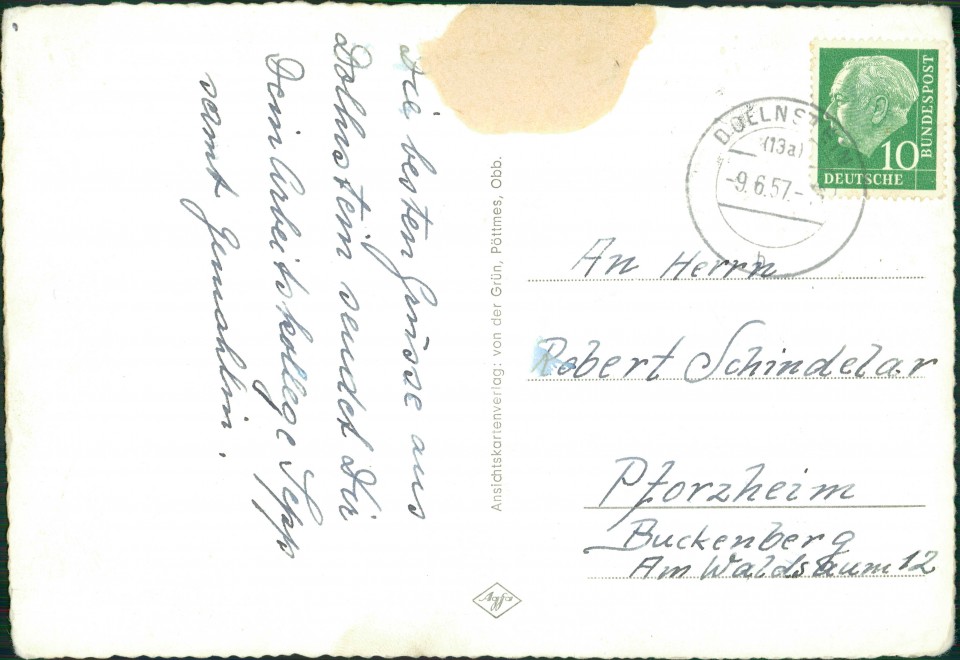 Die besten Grüsse aus
Dollnstein sendet Dir
Dein Arbeitskollege Sepp
samt Gemahlin.
Ansichtskartenverlag: von der Grün, Pöttmes, Obb.
Agfa
DOELNSTEIN
(13a)
-9.6.57.-
b
10
DEUTSCHE
BUNDESPOST
An Herrn
Robert Schindelar
Pforzheim
Buckenberg
Am Waldsaum 12